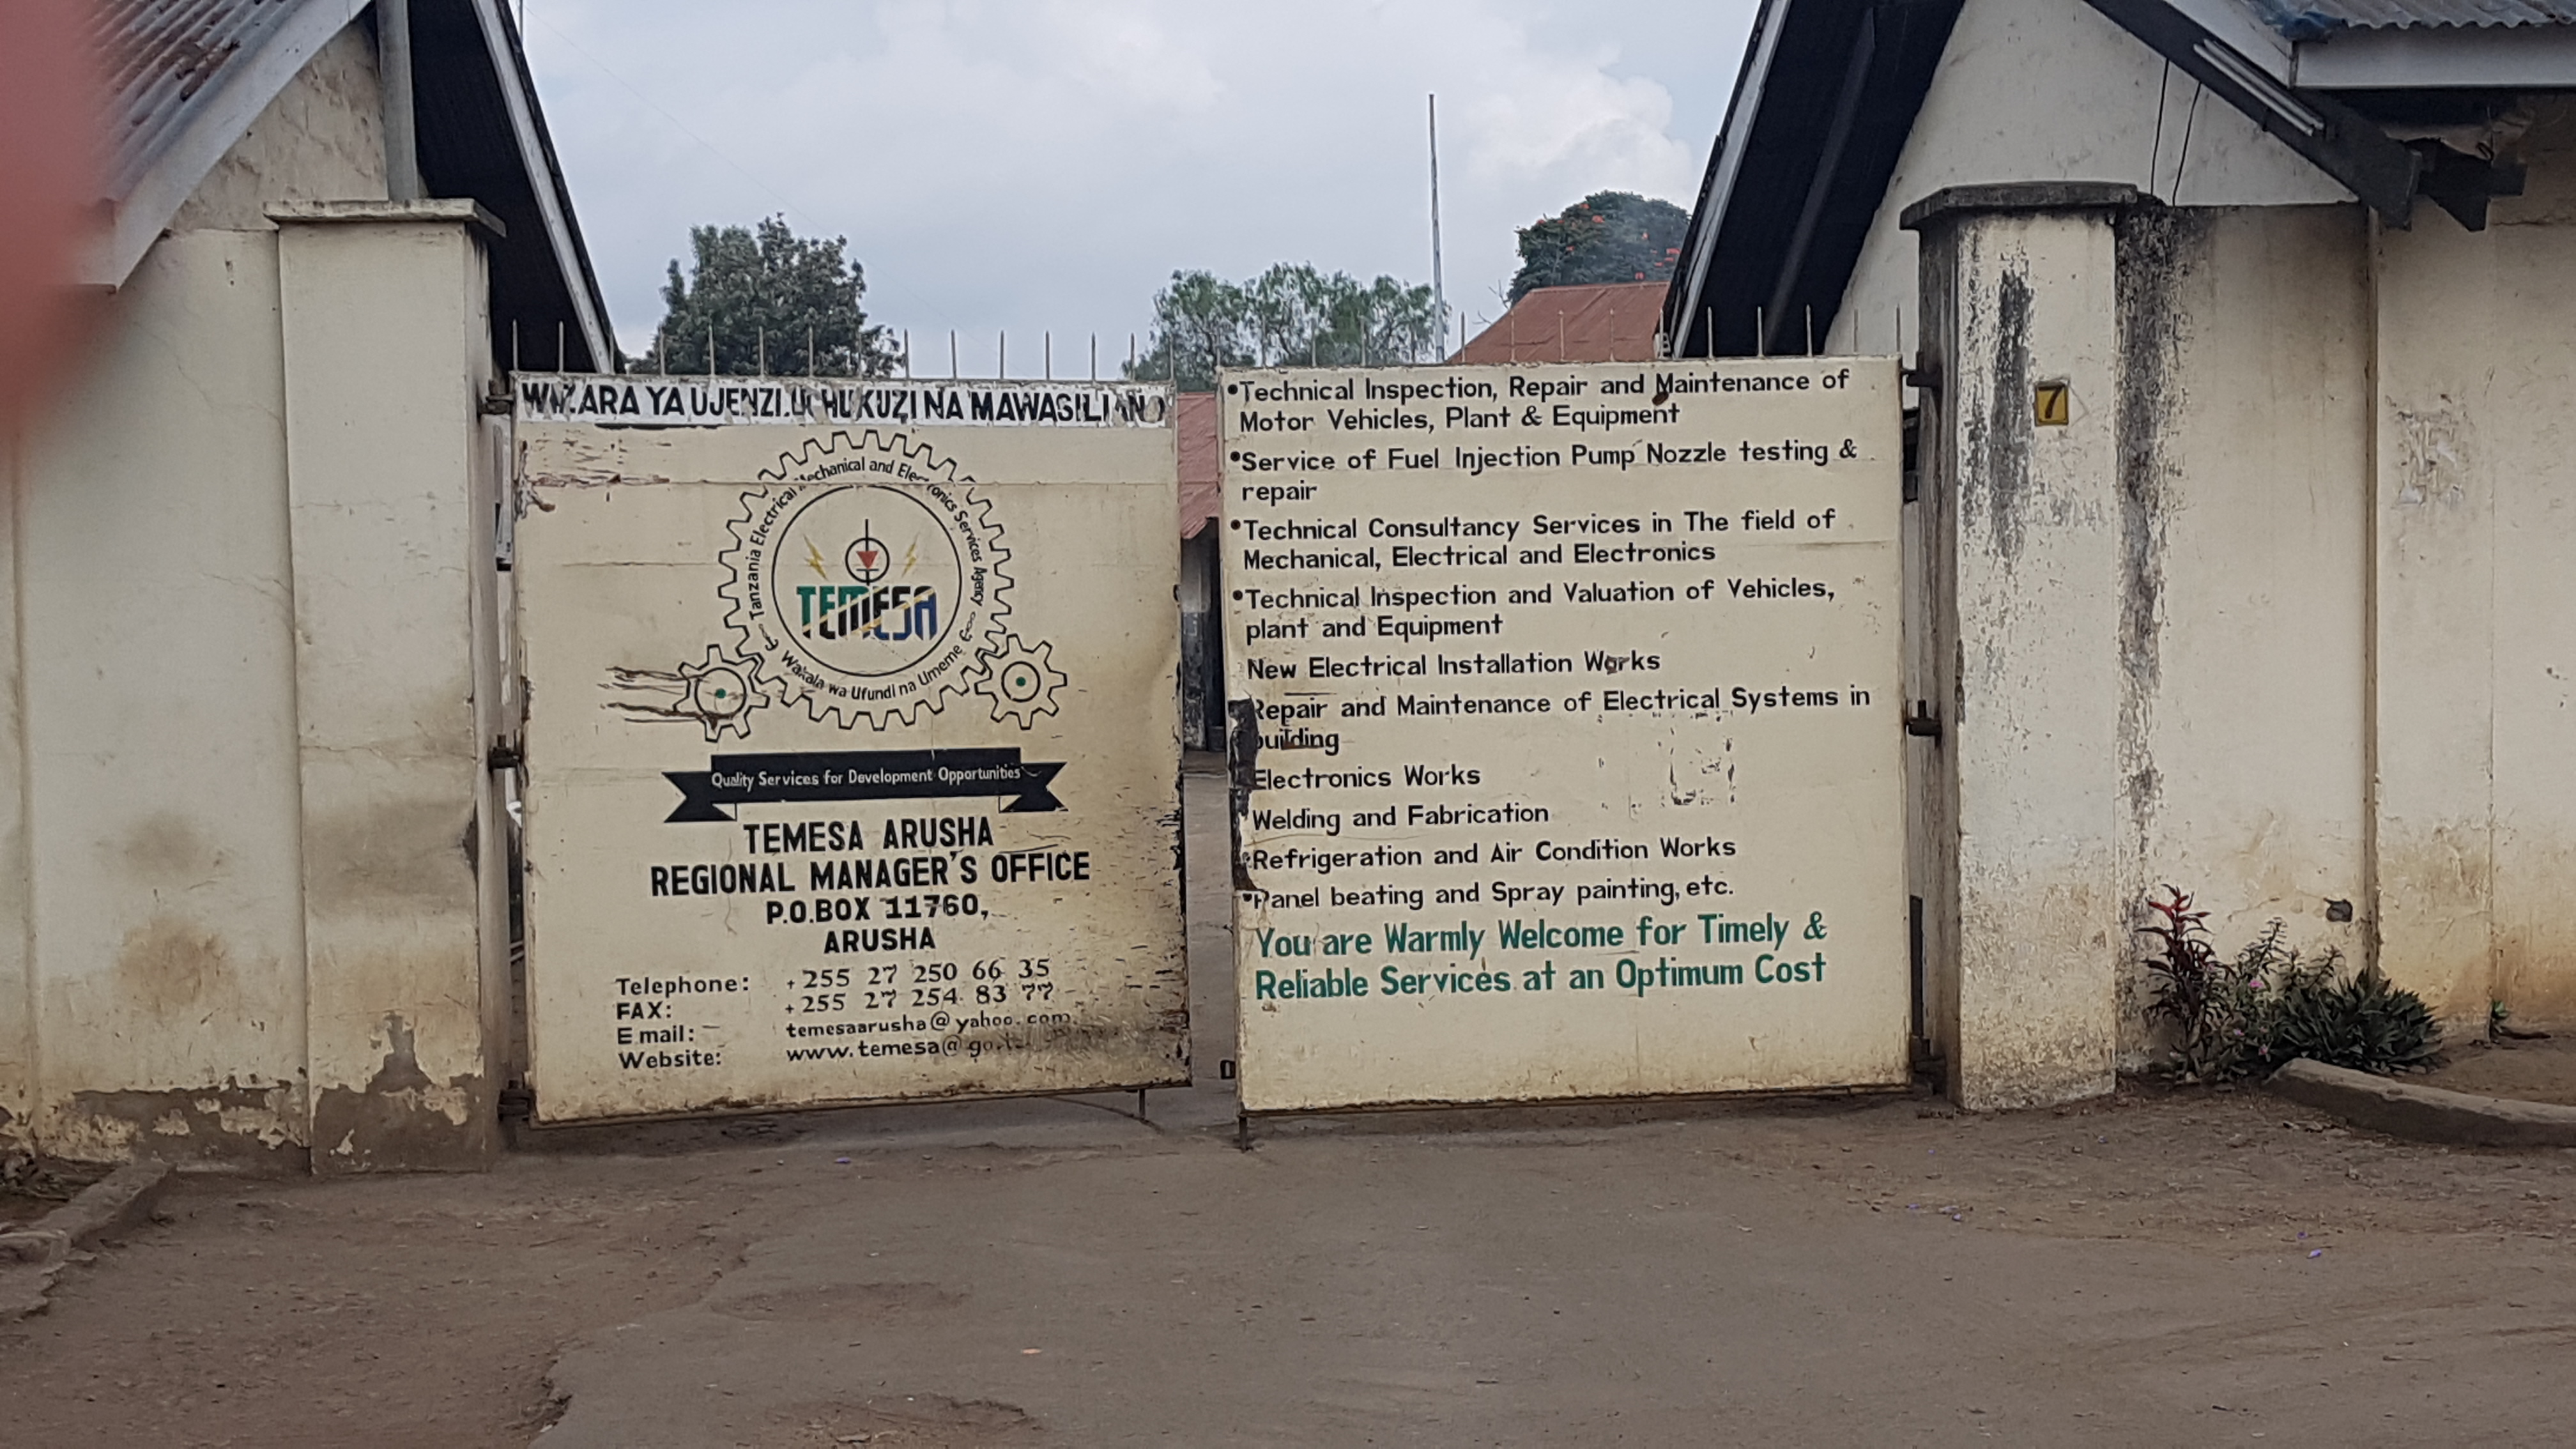 WIZARA YA UJENZI.UCHUKUZI NA MAWASILIANO
Tanzania Electrical Mechanical and Electronics Services Agency
TEMESA
Wakala wa Ufundi na Umeme
Quality Services for Development Opportunities
TEMESA ARUSHA
REGIONAL MANAGER'S OFFICE
P.O.BOX 11760,
ARUSHA
Telephone: +255 27 250 66 35
FAX: +255 27 254 83 77
Email: temesaarusha@yahoo.com
Website: www.temesa@go.
•Technical Inspection, Repair and Maintenance of
Motor Vehicles, Plant & Equipment
•Service of Fuel Injection Pump Nozzle testing &
repair
•Technical Consultancy Services in The field of
Mechanical, Electrical and Electronics
•Technical Inspection and Valuation of Vehicles,
plant and Equipment
New Electrical Installation Works
Repair and Maintenance of Electrical Systems in
building
Electronics Works
Welding and Fabrication
•Refrigeration and Air Condition Works
•Panel beating and Spray painting, etc.
You are Warmly Welcome for Timely &
Reliable Services at an Optimum Cost
7